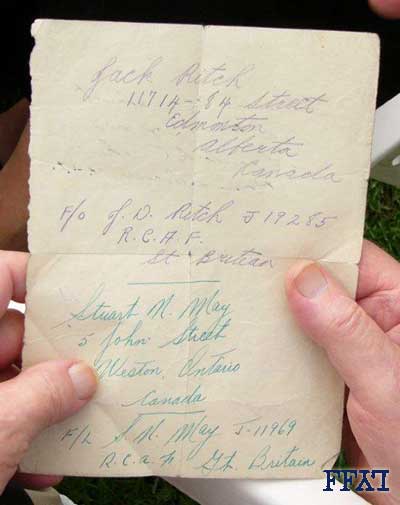 Jack Ritch
11714-84 Street
Edmonton
Alberta
Kanada
F/O J. D. Ritch J 19285
R.C.A.F.
Gt Britian
Stuart M. May
5 John Street
Weston, Ontario
Canada
F/L S. M. May J-11969
R.C.A.F. Gt. Britain
FFXT